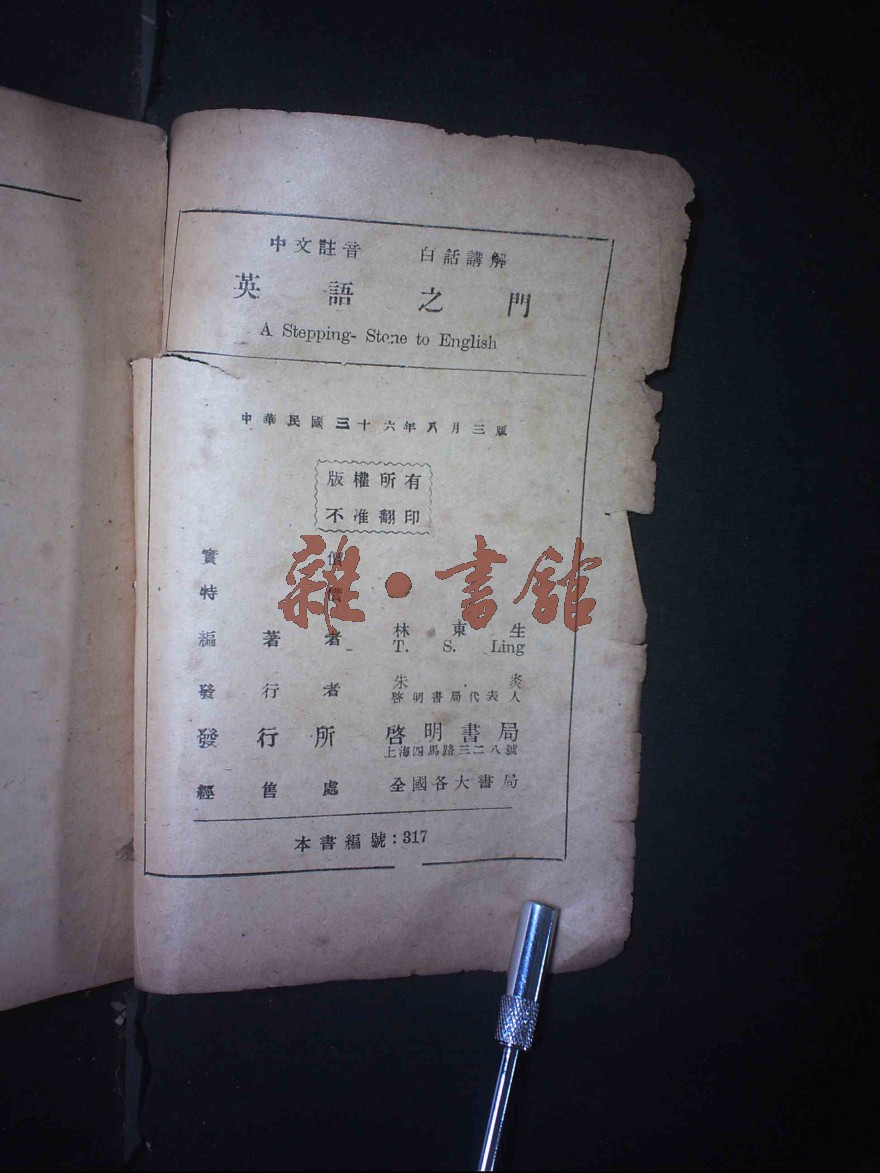 中文註音 白話講解
英語之門
A Stepping-Stone to English
中華民國三十六年八月三版
版權所有
不准翻印
實價
特價
雜·書館
編著者 林東生
T. S. Ling
發行者 朱炎
啓明書局代表人
發行所 啓明書局
上海四馬路三二八號
經售處 全國各大書局
本書編號：317